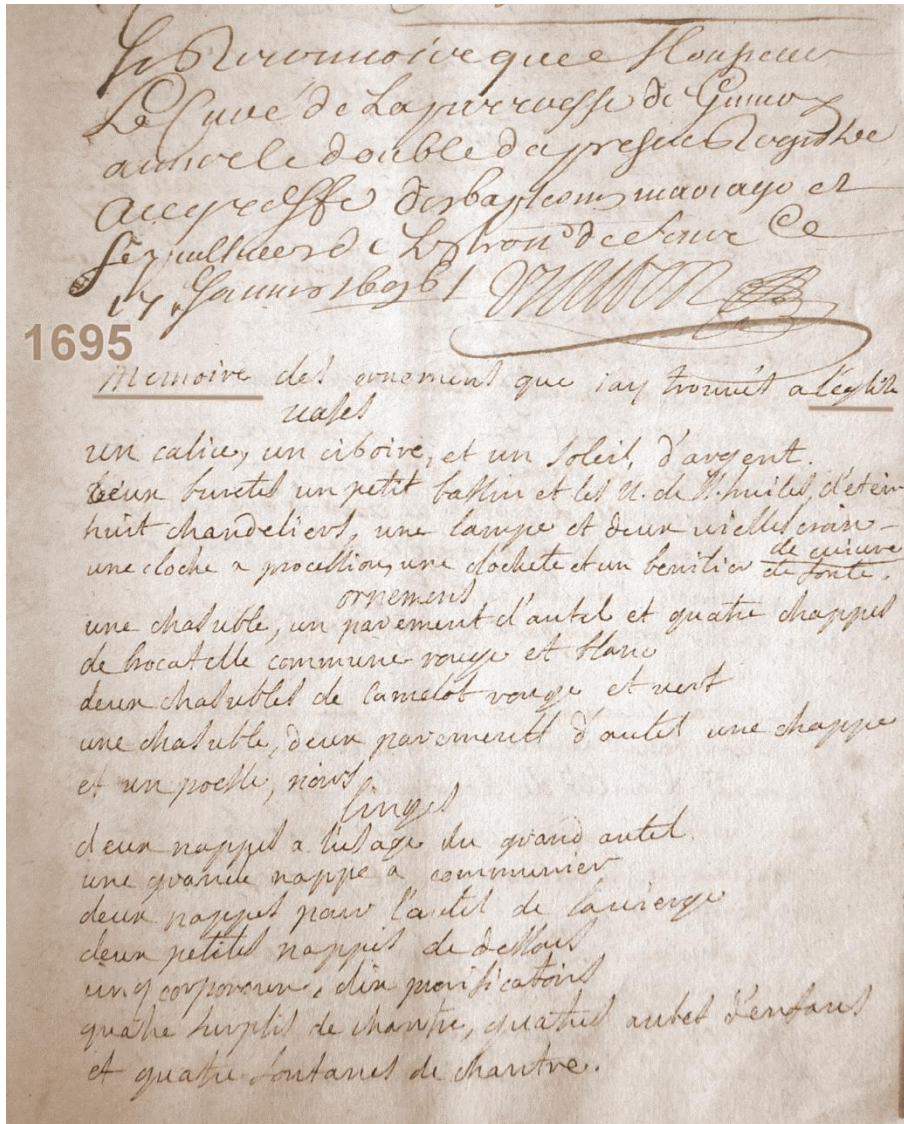 Je Reconnoive que Monsieur
Le Curé de La parroesse de
a le double du presens Registre
Au greffe des baptesmes mariage et
sepultures de de ce
17 Janvier 1696
1695
Memoire des ornement que iay trouvés a l'eglise
vases
un calice, un ciboire, et un soleil, d'argent.
deux buretes un petit bassin et les d'etein
huit chandeliers, une lampe et deux vielles croix
une cloche a procession, une clochete et un benitier de cuivre
de fonte.
ornemens
une chasuble, un parement d'autel et quatre chappes
de brocatelle commune rouge et blanc
deux chasubles de camelot rouge et vert
une chasuble, deux parements d'autel une chappe
et un poelle, noirs
linges
deux nappes a l'usage du grand autel.
une grande nappe a communier
deux nappes pour l'autel de la vierge
deux petites nappes de dessous
corporeaux, dix purificatoirs
quatre surplis de chantre, quatres aubes d'enfans
et quatre soutanes de chantre.